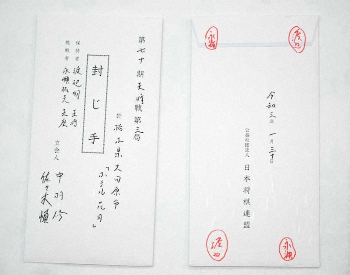 第七十期王将戦第三局
於 栃木県大田原市
「ホテル花月」
封じ手
保持者 渡辺明 王将
挑戦者 永瀬拓矢 王座
立会人
中村修
佐々木慎
永瀬
渡辺
令和三年 一月三十日
公益社団法人 日本将棋連盟
渡辺
永瀬